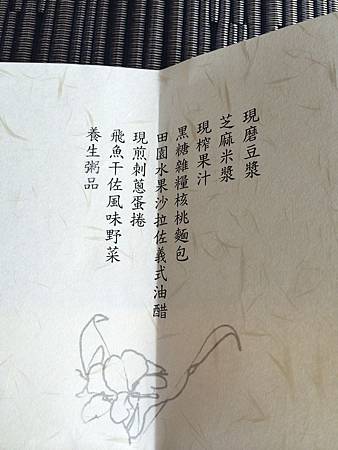 現磨豆漿
芝麻米漿
現榨果汁
黑糖雜糧核桃麵包
田園水果沙拉佐義式油醋
現煎刺蔥蛋捲
飛魚干佐風味野菜
養生粥品